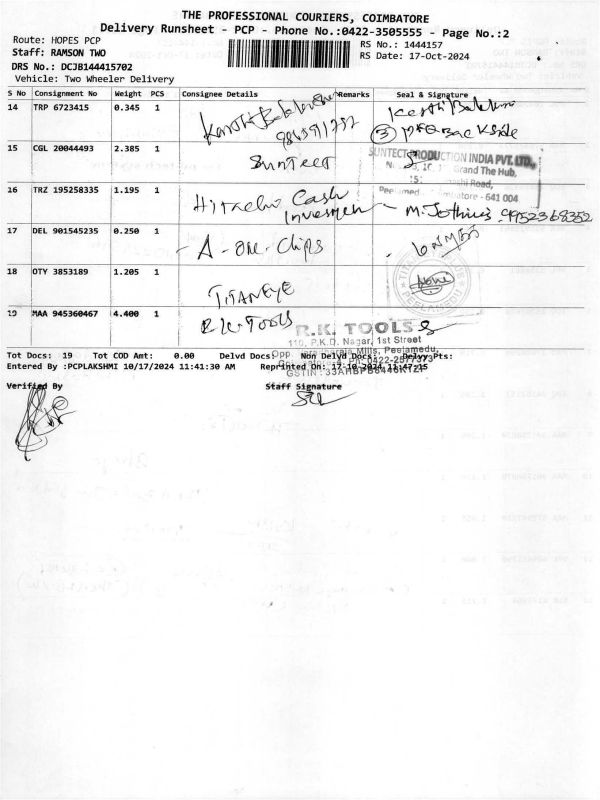 THE PROFESSIONAL COURIERS, COIMBATORE
Delivery Runsheet - PCP - Phone No.:0422-3505555 - Page No.:2
Route: HOPES PCP
RS No.: 1444157
Staff: RAMSON TWO
RS Date: 17-Oct-2024
DRS No.: DCJB144415702
Vehicle: Two Wheeler Delivery
S No Consignment No Weight PCS Consignee Details Remarks Seal & Signature
14 TRP 6723415 0.345 1
15 CGL 20044493 2.385 1 Suntect
SUNTECT PRODUCTION INDIA PVT. LTD.,
Grand The Hub,
Road,
Peelamed Coimbatore - 641 004
16 TRZ 195258335 1.195 1 Hitachi Cash
M. 9952368352
17 DEL 901545235 0.250 1 A-one-Chips
18 OTY 3853189 1.205 1 TITANEYE
PEELAMEDU
19 MAA 945360467 4.400 1 R.K. TOOLS
R.K. TOOLS
110, P.K.D. Nagar, 1st Street
Mills, Peelamedu,
Tot Docs: 19 Tot COD Amt: 0.00 Delvd Docs: Non Delvd Docs: Delvy Pts:
Ph: 0422-2577373
Entered By :PCPLAKSHMI 10/17/2024 11:41:30 AM Reprinted On: 17-10-2024 11:47:15
Verified By Staff Signature